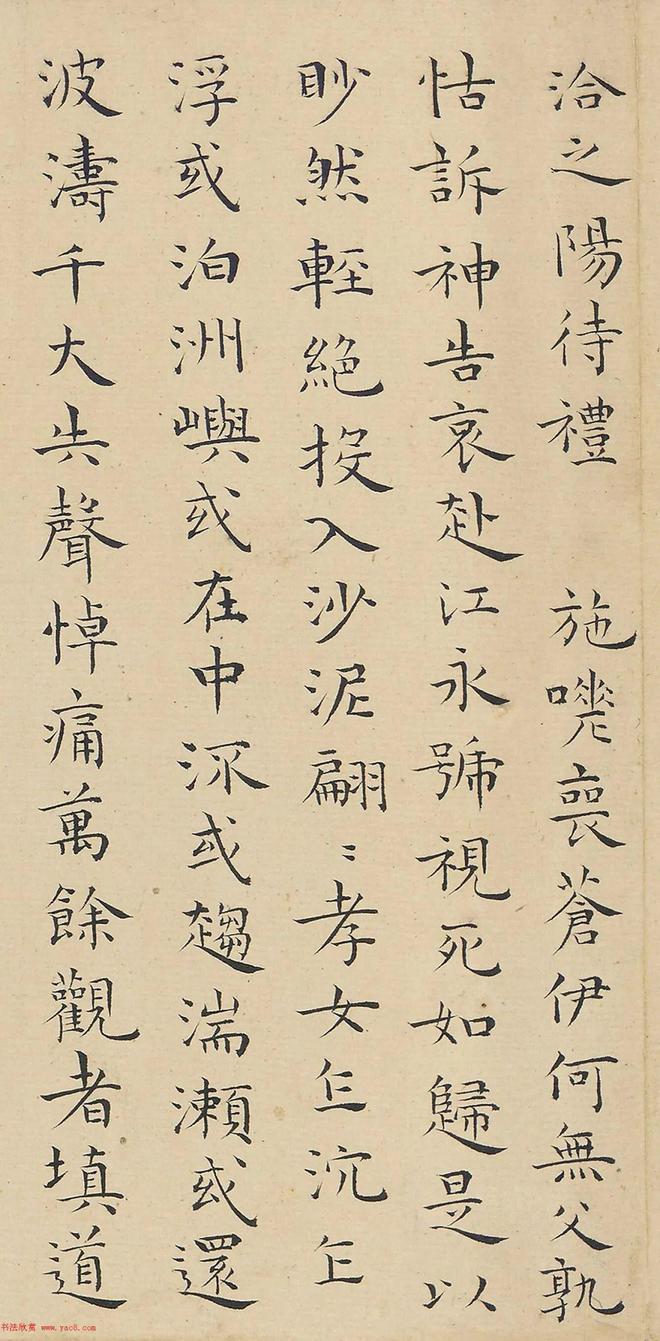 洽之陽待禮　施嘆喪蒼伊何無父孰
怙訴神告哀赴江永號視死如歸是以
眇然輕絕投入沙泥翩〻孝女乍沉乍
浮或泊洲嶼或在中流或趨湍瀨或還
波濤千夫失聲悼痛萬餘觀者填道
书法欣赏 www.yac8.com